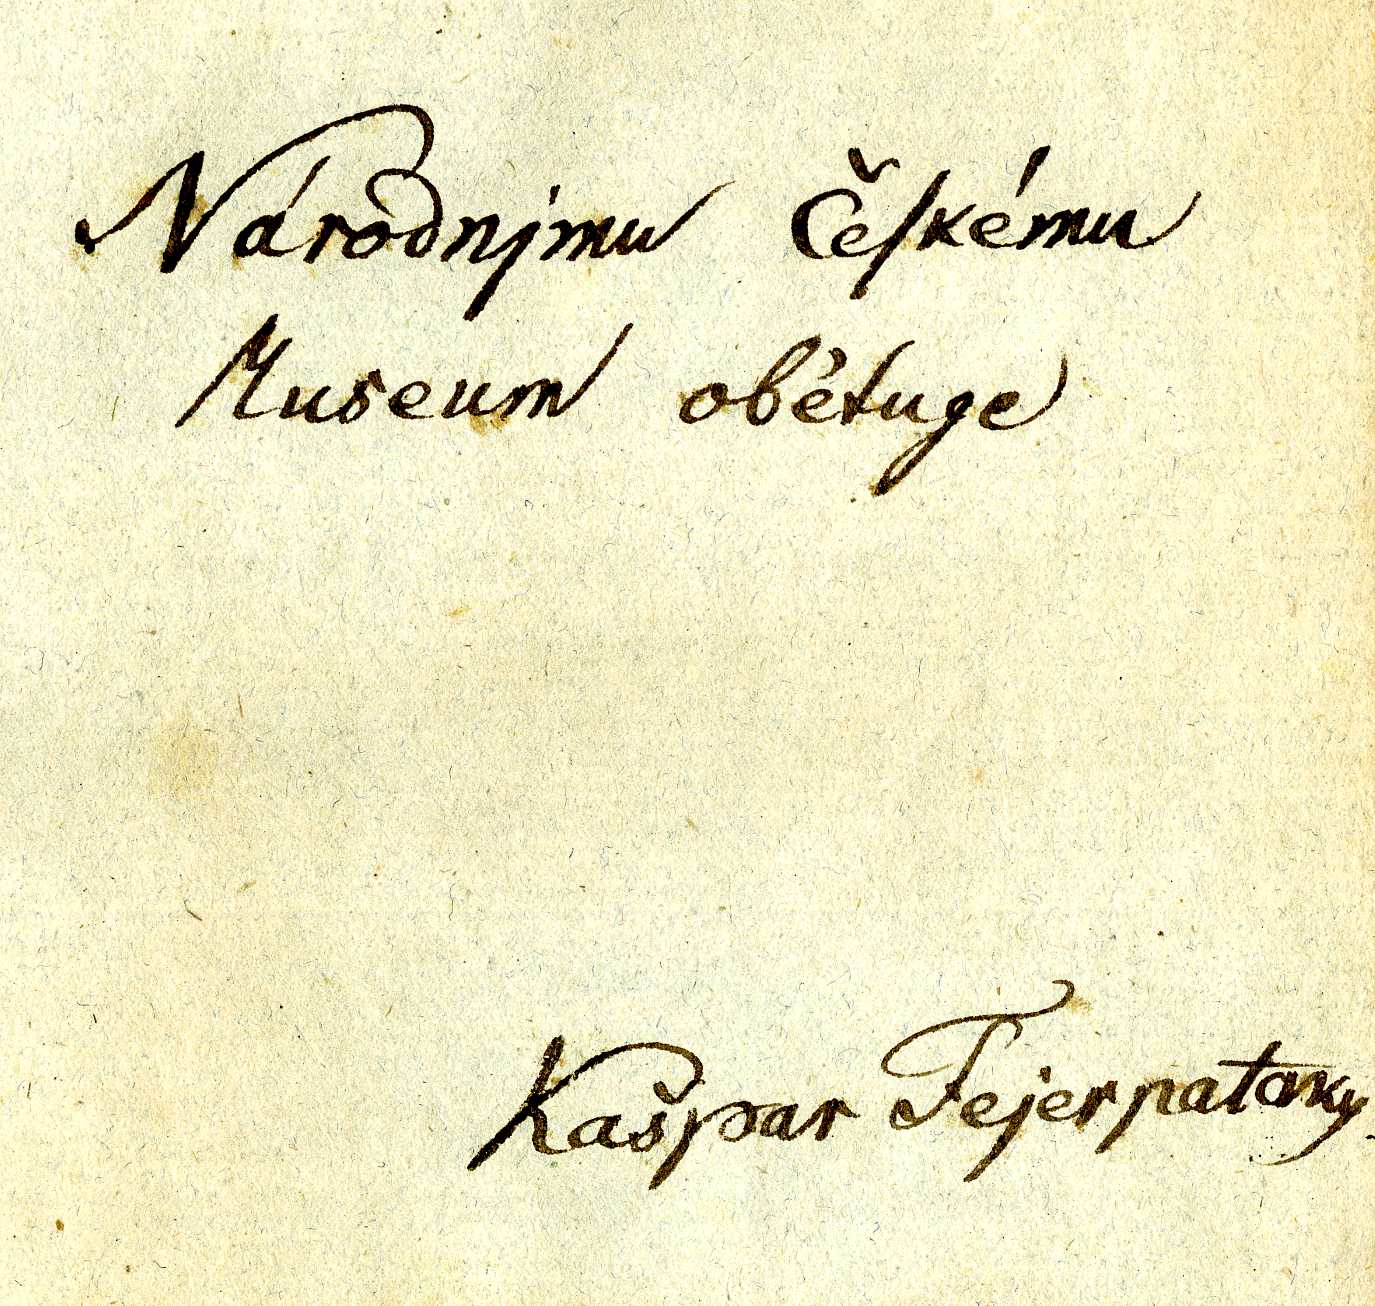 Národnjmu Čeſkému
Museum obětuge
Kašpar Fejerpataky